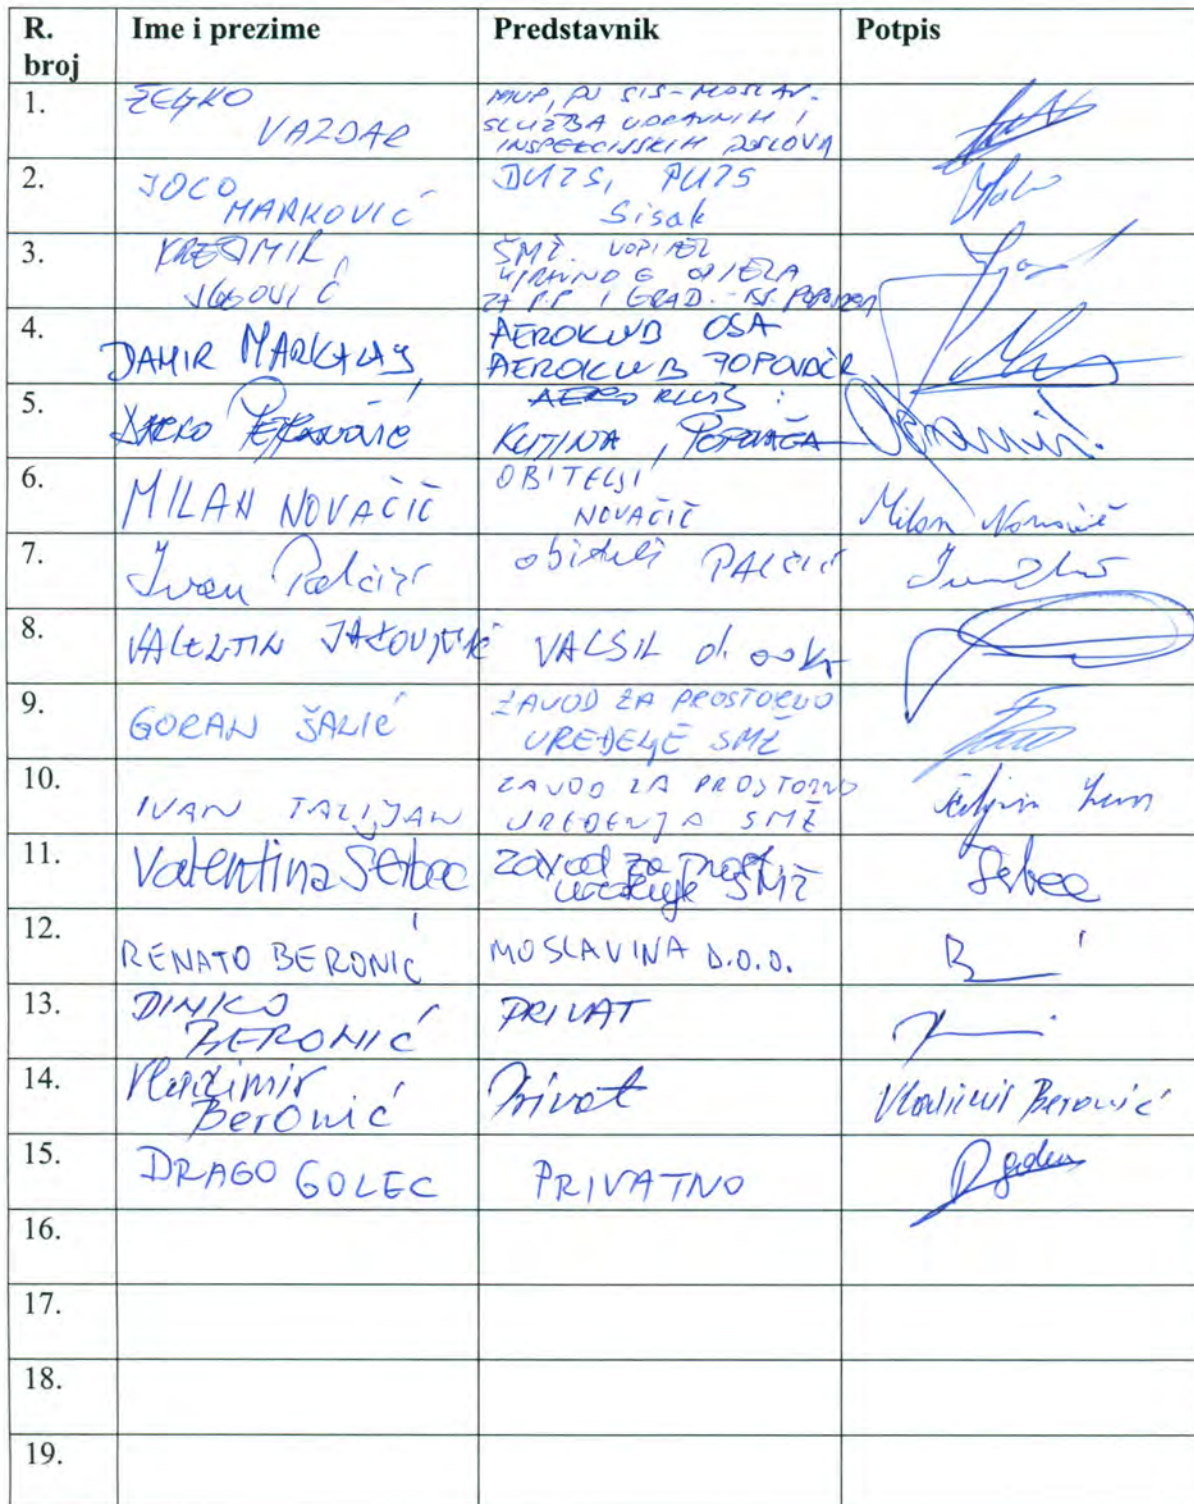 R. broj Ime i prezime Predstavnik Potpis
1. ŽELJKO VAZDAR MUP, PU SIS-MOSLAV. SLUŽBA UPRAVNIH I INSPEKCIJSKIH POSLOVA
2. JOCO MARKOVIĆ DUZS, PUZS Sisak
3. KREŠIMIR SMŽ. ZA P.P I GRAD.
4. DAMIR AEROKLUB OSA AEROKLUB POPOVAČA
5. DARKO AERO KLUB: KUTINA, POPOVAČA
6. MILAN NOVAČIĆ OBITELJI NOVAČIĆ Milan Novačić
7. Ivan Palčić obitelj PALČIĆ
8. VALENTIN VALSIL d.o.o
9. GORAN ŠALIĆ ZAVOD ZA PROSTORNO UREĐENJE SMŽ
10. IVAN TALIJAN ZAVOD ZA PROSTORNO UREĐENJA SMŽ
11. Valentina Šerbec zavod za prost. uređenje SMŽ Šerbec
12. RENATO BERONIĆ MOSLAVINA D.O.O.
13. DINKO BERONIĆ PRIVAT
14. Vladimir Beronić Privat Vladimir Beronić
15. DRAGO GOLEC PRIVATNO
16.
17.
18.
19.